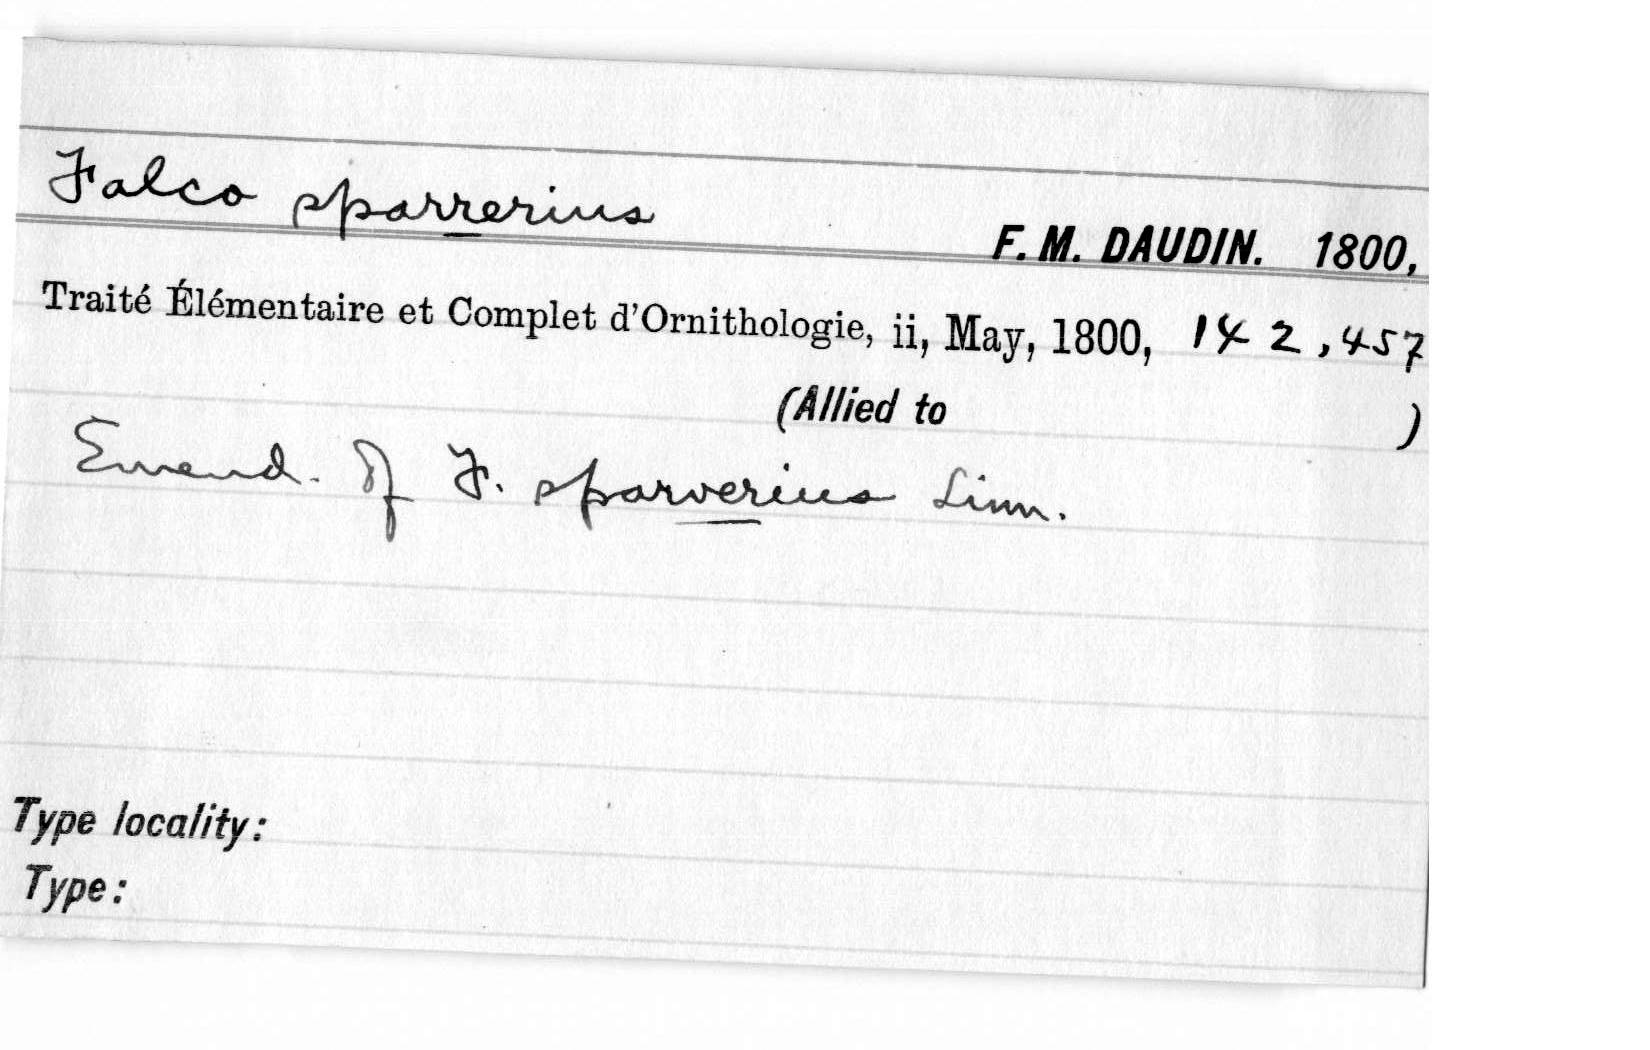 Falco sparrerius
F. M. DAUDIN. 1800,
Traité Élémentaire et Complet d'Ornithologie, ii, May, 1800, 142, 457
(Allied to )
Emend. of F. sparverius Linn.
Type locality:
Type: